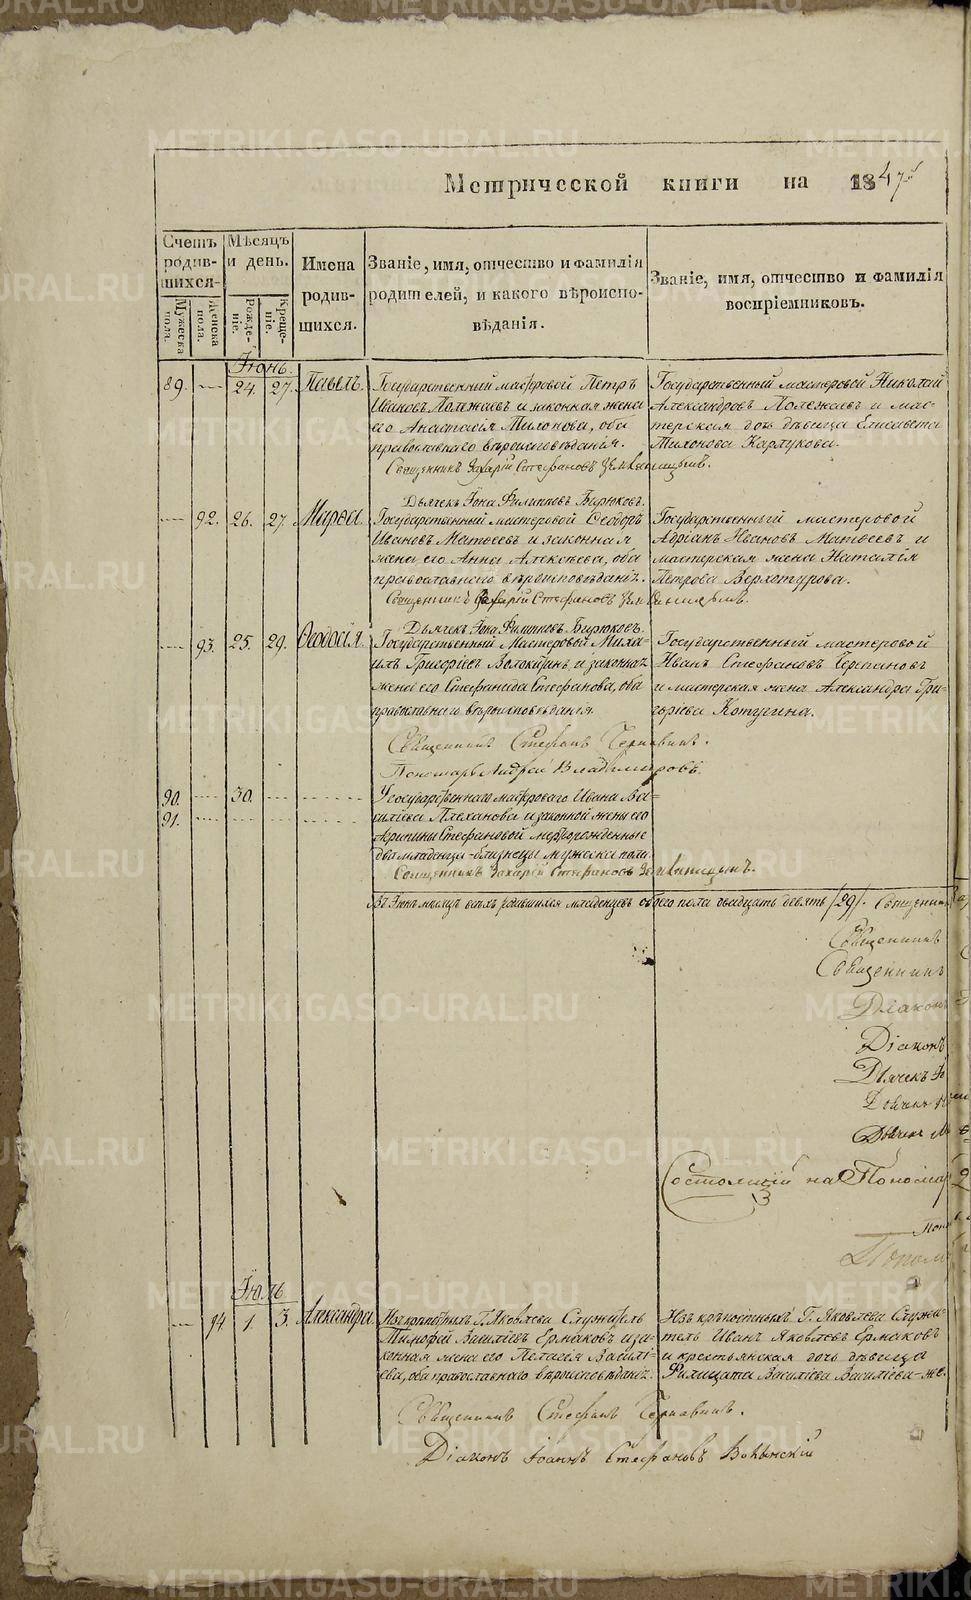 Метрической книги на 1847й
Счетъ родив-шихся.
Мѣсяцъ и день.
Имена родив-шихся.
Званіе, имя, отчество и фамилія родителей, и какого вѣроиспо-вѣданія.
Званіе, имя, отчество и фамилія воспріемниковъ.
Мужеска пола.
Женска пола.
Рожде-ніе.
Креще-ніе.
Іюнь.
89. 24. 27. Павелъ.
Государственный мастеровой Петръ
Ивановъ Полежаевъ и законная жена
его Анастасія Тихонова, оба
православнаго вѣроисповѣданія.
Государственный мастеровой Николай
Александровъ Полежаевъ и мас-
терская дочь дѣвица Елисавета
Тихонова Карлукова.
Священникъ Захарій Стефановъ
Дьячекъ Іона Филипповъ Бирюковъ.
92. 26. 27. Марѳа.
Государственный мастеровой Ѳеодоръ
Ивановъ Матѳеевъ и законная
жена его Анна Алексѣева, оба
православнаго вѣроисповѣданія.
Государственный мастеровой
Адріанъ Ивановъ Матѳеевъ и
мастерская жена Наталія
Петрова Верхотурова.
Священникъ Захарій Стефановъ
Дьячекъ Іона Филипповъ Бирюковъ.
93. 25. 29. Ѳеодосія.
Государственный Мастеровой Миха-
илъ Григорьевъ и законная
жена его Стефанида Стефанова, оба
православнаго вѣроисповѣданія.
Государственный мастеровой
Иванъ Стефановъ Черепановъ
и мастерская жена Александра Гри-
горіева Котугина.
Священникъ Стефанъ Чернавинъ.
Пономарь Андрей Владимировъ.
90. 30.
91.
Государственнаго мастероваго Ивана Ва-
силіева Плеханова и законной жены его
Акрипины Стефановой мертворожденные
два младенца-близнецы мужеска пола.
Священникъ Захарій Стефановъ
Въ Іюнѣ мѣсяцѣ всѣхъ родившихся младенцевъ обоего пола двадцать девять /29/. Священникъ
Священникъ
Священникъ
Діаконъ
Діаконъ
Дьячекъ Іо
Дьячекъ
Дьячекъ
Состоящій на Пономар
Поно
Поном
Іюль
94. 1. 3. Александра.
Изъ крѣпостныхъ Г. Яковлева Служитель
Тимофей Василіевъ Ермаковъ и за-
конная жена его Пелагія Василі-
ева, оба православнаго вѣроисповѣданія.
Изъ крѣпостныхъ Г. Яковлева Служи-
тель Иванъ Яковлевъ Ермаковъ
и крестьянская дочь дѣвица
Филицата Василіева Василіева-же.
Священникъ Стефанъ Чернавинъ.
Діаконъ Іоаннъ Стефановъ
METRIKI.GASO-URAL.RU